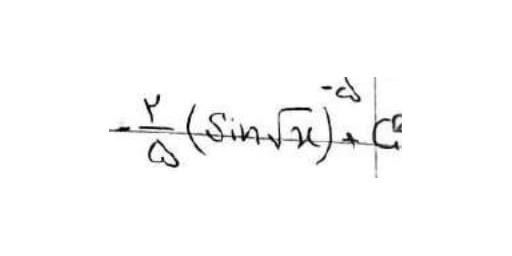 -۲/۵ (Sin√x)^-۵ + C